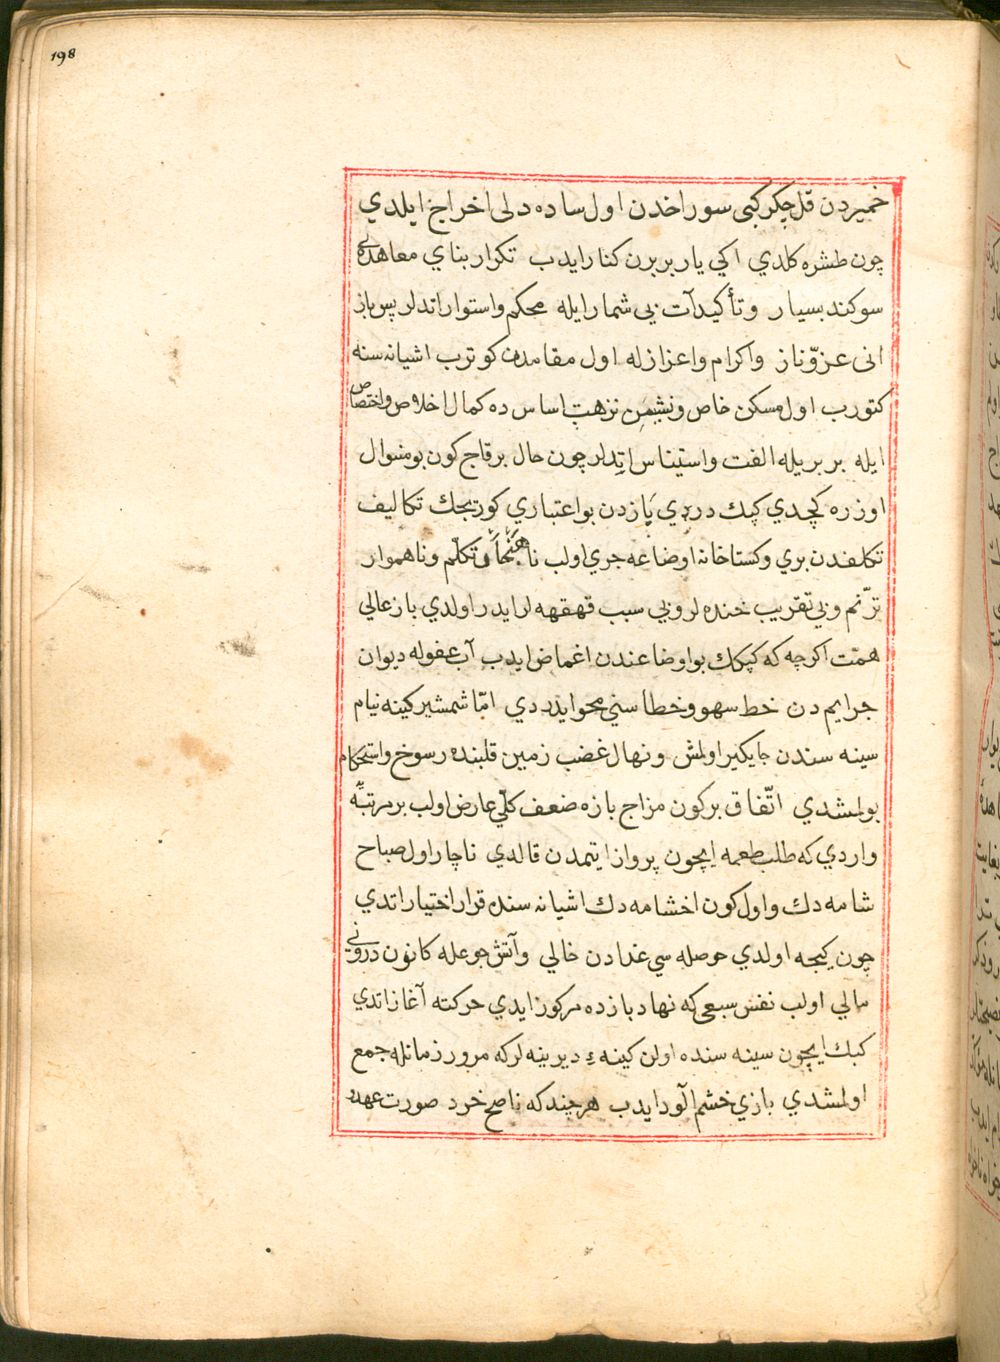 198
خميردن قل چكر كبى سوراخدن اول ساده دلى اخراج ايلدي
چون طشره كلدي اكي يار بربرن كنار ايدب تكرار بناي معاهدهٔ
سوكند بسيار وتأكيدآت بي شمار ايله محكم واستوار اتدلر پس باز
انى عزّوناز واكرام واعزازله اول مقامدن كوترب اشيانه سنه
كتورب اول مسكن خاص ونشيمن نزهت اساس ده كمال اخلاص واختصاص
ايله بربريله الفت واستيناس اتدلر چون حال برقاچ كون بومنوال
اوزره كچدي كپك دردي بازدن بو اعتباري كوريجك تكاليف
تكلفدن بري وكستاخانه اوضاعه جري اولب ناهنجار تكلّم وناهموار
ترّنم وبي تقريب خنده لر وبي سبب قهقهه لر ايدر اولدي باز عالي
همّت اكرچه كه كپكك بو اوضاعندن اغماض ايدب آب عفوله ديوان
جرايم دن خط سهو وخطاسني محو ايدردي امّا شمشير كينه نيام
سينه سندن جايكير اولمش ونهال غضب زمين قلبنده رسوخ واستحكام
بولمشدي اتّفاق بر كون مزاج بازه ضعف كلّي عارض اولب بر مرتبه
واردي كه طلب طعمه ايچون پرواز ايتمدن قالدي ناچار اول صباح
شامه دك واول كون اخشامه دك اشيانه سنده قرار اختيار اتدي
چون كيجه اولدي حوصله سي غدادن خالي وآتش جوعله كانون دروني
مالي اولب نفس سبعى كه نهاد بازده مركوز ايدي حركته آغاز اتدي
كبك ايچون سينه سنده اولن كينهء ديرينه لر كه مرور زمانله جمع
اولمشدي بازي خشم آلود ايدب هرچند كه ناصح خرد صورت عهد